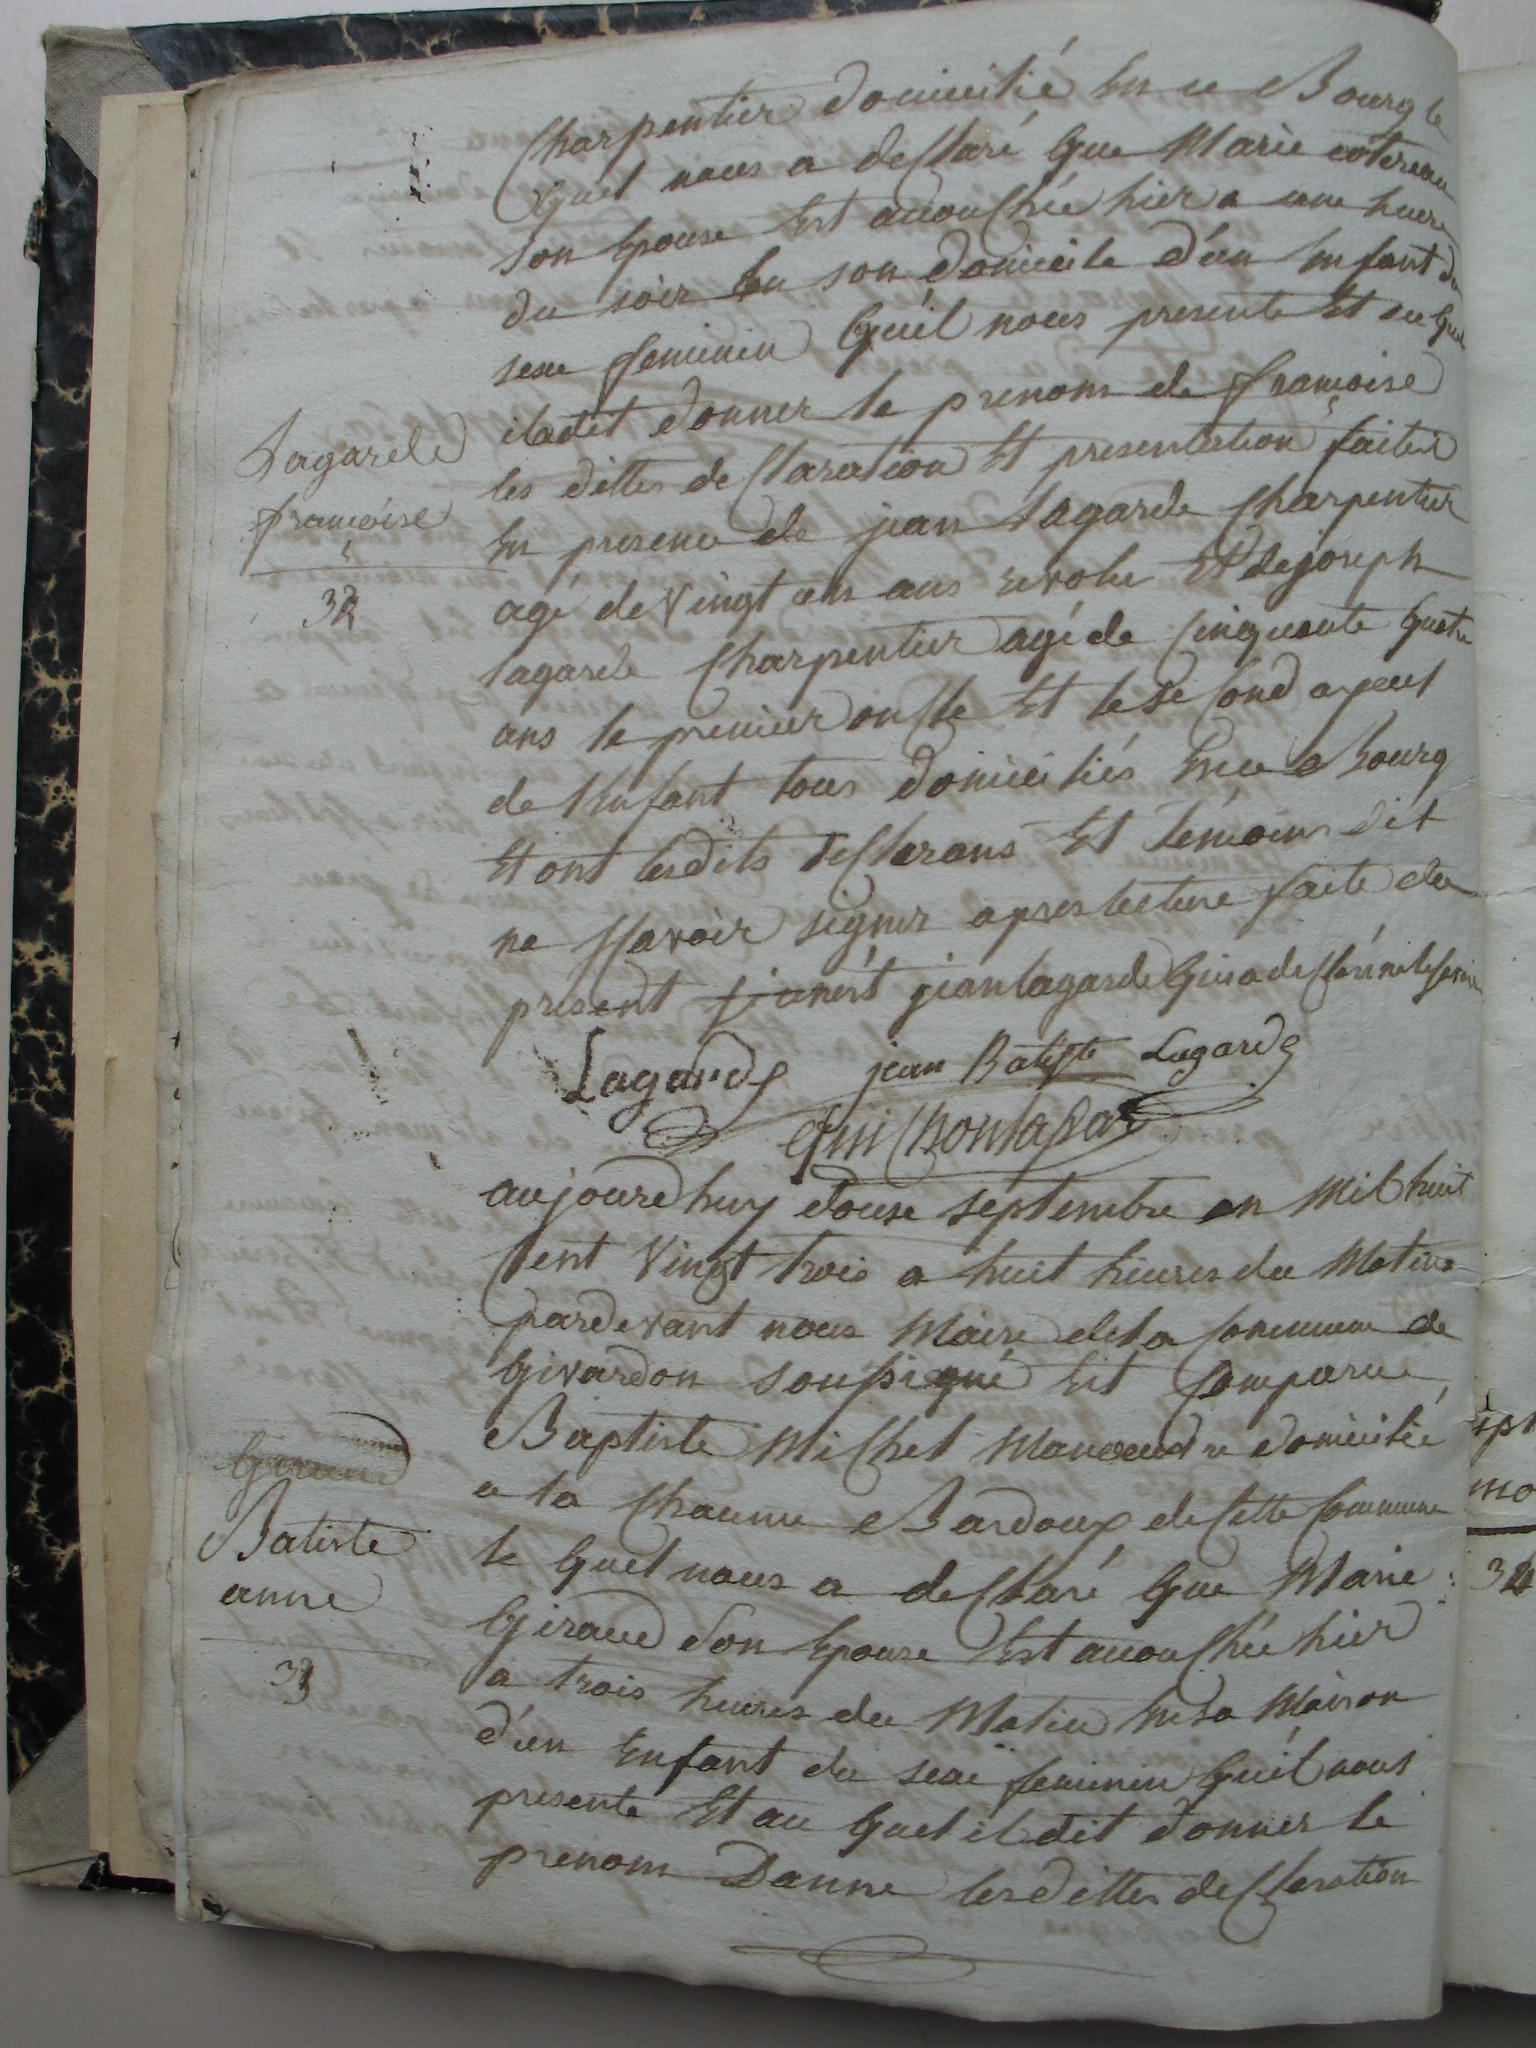 Charpentier domicilié En ce Bourg le
Quel nous a desclaré Que Marie cotereau
son Epouse Est accouchée hier a une heure
du soir En son domicile d'un Enfant du
sexe feminin Qu'il nous presente Et au Quel
il a dit donner le prenom de françoise
les dittes desclaration Et presentation faites
En presence de jean Lagarde Charpentier
agé de vingt un ans revolu Et de joseph
lagarde Charpentier agé de Cinquante Quatre
ans le premier oncle Et le second ayeul
de l'Enfant tous domiciliés En ce Bourg
Et ont lesdits desclarans Et temoins dit
ne sçavoir signer apres lecture faite du
present jean lagarde Qui a desclaré ne le savoir
Lagarde jean Batiste Lagarde
Lagarde
françoise
32
aujourdhuy douse septembre an Mil huit
Cent Vingt trois a huit heures du Matin
pardevant nous Maire de la Commune de
Givardon soussigné Est Comparu
Baptiste Michel Manoeuvre domicilié
a la Chaume Bardoux de Cette Commune
le Quel nous a desclaré Que Marie
Giraud son Epouse Est accouchée hier
a trois heures du Matin En sa Maison
d'un Enfant du sexe feminin Qu'il nous
presente Et au Quel il dit donner le
prenom Danne les dittes desclaration
Giraud
Batiste
anne
33